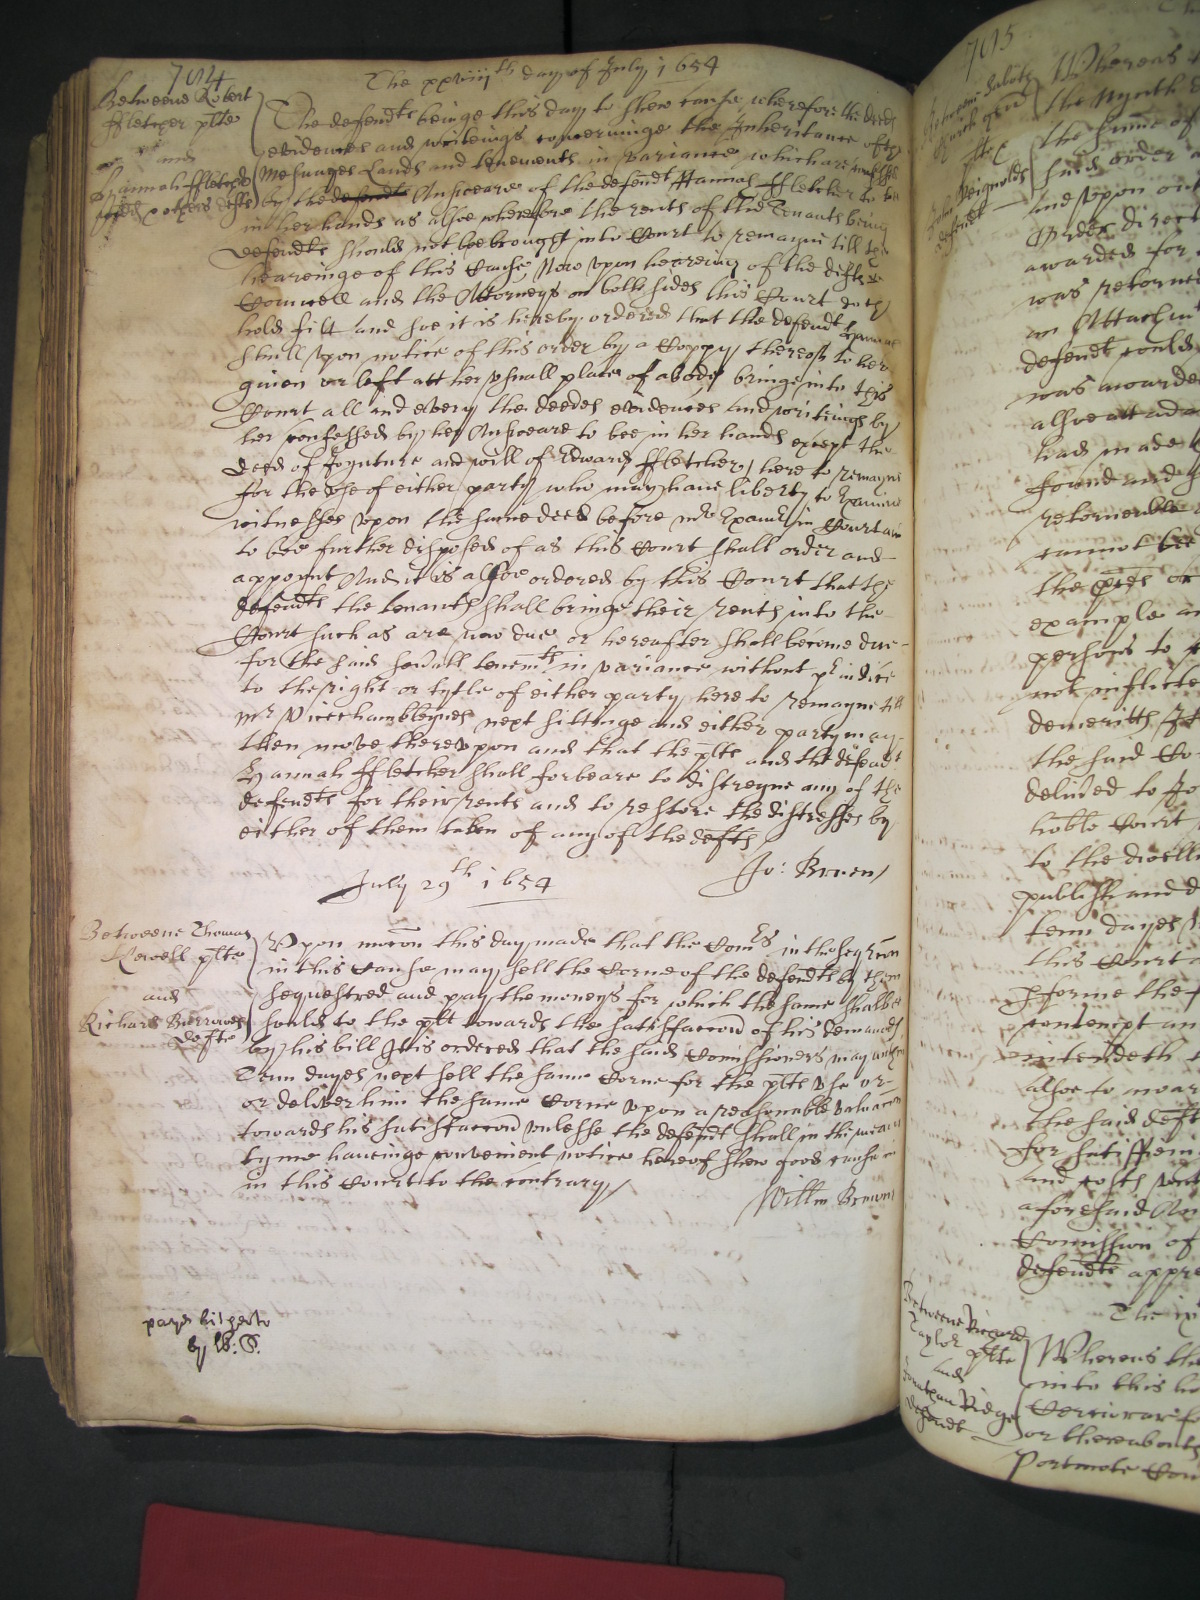 704
The xxviiith day of July 1654
Betweene Robert
ffletcher plte
and
Hannah ffletcher
& others defts
The defendts beinge this day to shew cause wherefore the deeds
evidences and writeings concerninge the Inheritance of the
Mesuages Lands and tenements in variance which are confessed
by the defendt Answeare of the defendt Hannah ffletcher to bee
in her hands as alsoe wherefore the rents of the Tenants being
defendts should not bee brought into Court to remayne till the
heareinge of this Cause, Now upon heareing of the defts
Councell and the Attorneys on both sides this Court doth
hold fitt and soe it is hereby ordered that the defendt Hannah
shall upon notice of this order by a Coppy thereof to her
given or left att her usuall place of abode bringe into this
Court all and every the deedes evidences and writings by
her confessed by her Answeare to bee in her hands except the
deed of Joynture and will of Edward ffletcher, here to remayne
for the use of either party who may have liberty to Examine
witnesses upon the same deed before mr Examr in Court and
to bee further disposed of as this Court shall order and
appoynt And it is alsoe ordered by this Court that the
defendts the tenants shall bringe their rents into the
Court such as are now due or hereafter shall become due
for the said sevall tenemts in variance without preiudice
to the right or tytle of either party here to remayne till
mr Vicechamblaynes next sittinge and either party may
then move thereupon and that the plte and the defendt
Hannah ffletcher shall forbeare to distreyne any of the
defendts for their rents and to restore the distresses by
either of them taken of any of the defts
Jo: Bruen
July 29th 1654
Betweene Thomas
Newell plte
and
Richard Burrowes
defte
Upon mocon this day made that the Comrs in the seqracon
in this Cause may sell the Corne of the defendts by them
sequestred and pay the moneys for which the same shalbee
sould to the plt towards the satisfaccon of his demands
by his bill It is ordered that the said Comissioners may within
Tenn dayes next sell the same Corne for the plts use or
or deliver him the same Corne upon a reasonable valuacon
towards his satisfaccon unlesse the defendt shall in the meane
tyme haveinge convenient notice hereof shew good cause
in this Court to the contrary
Willm Brown
payd hitherto
by
705
Whereas
the Nynth
the sume of
said order
and upon
Order direct
awarded for
was retorned
an Attachmt
defendt could
was awarded
alsoe att
had made
found and
retorneable
cannot bee
the
example
persons to
not inflicted
demeritts
the said Co
delived to Jo
hoble Court
to the dwelli
publish and
tenn dayes
this Court
pforme the
contempt an
intendeth
alsoe to
the said deft
for
and costs
aforesaid An
Comission of
defendts appre
The ix
Betweene Richard
Taylor plte
and
Jonathan Ridge
defendt
Whereas the
into this ho
Certiorari fo
or thereabouts
Portmote Cou